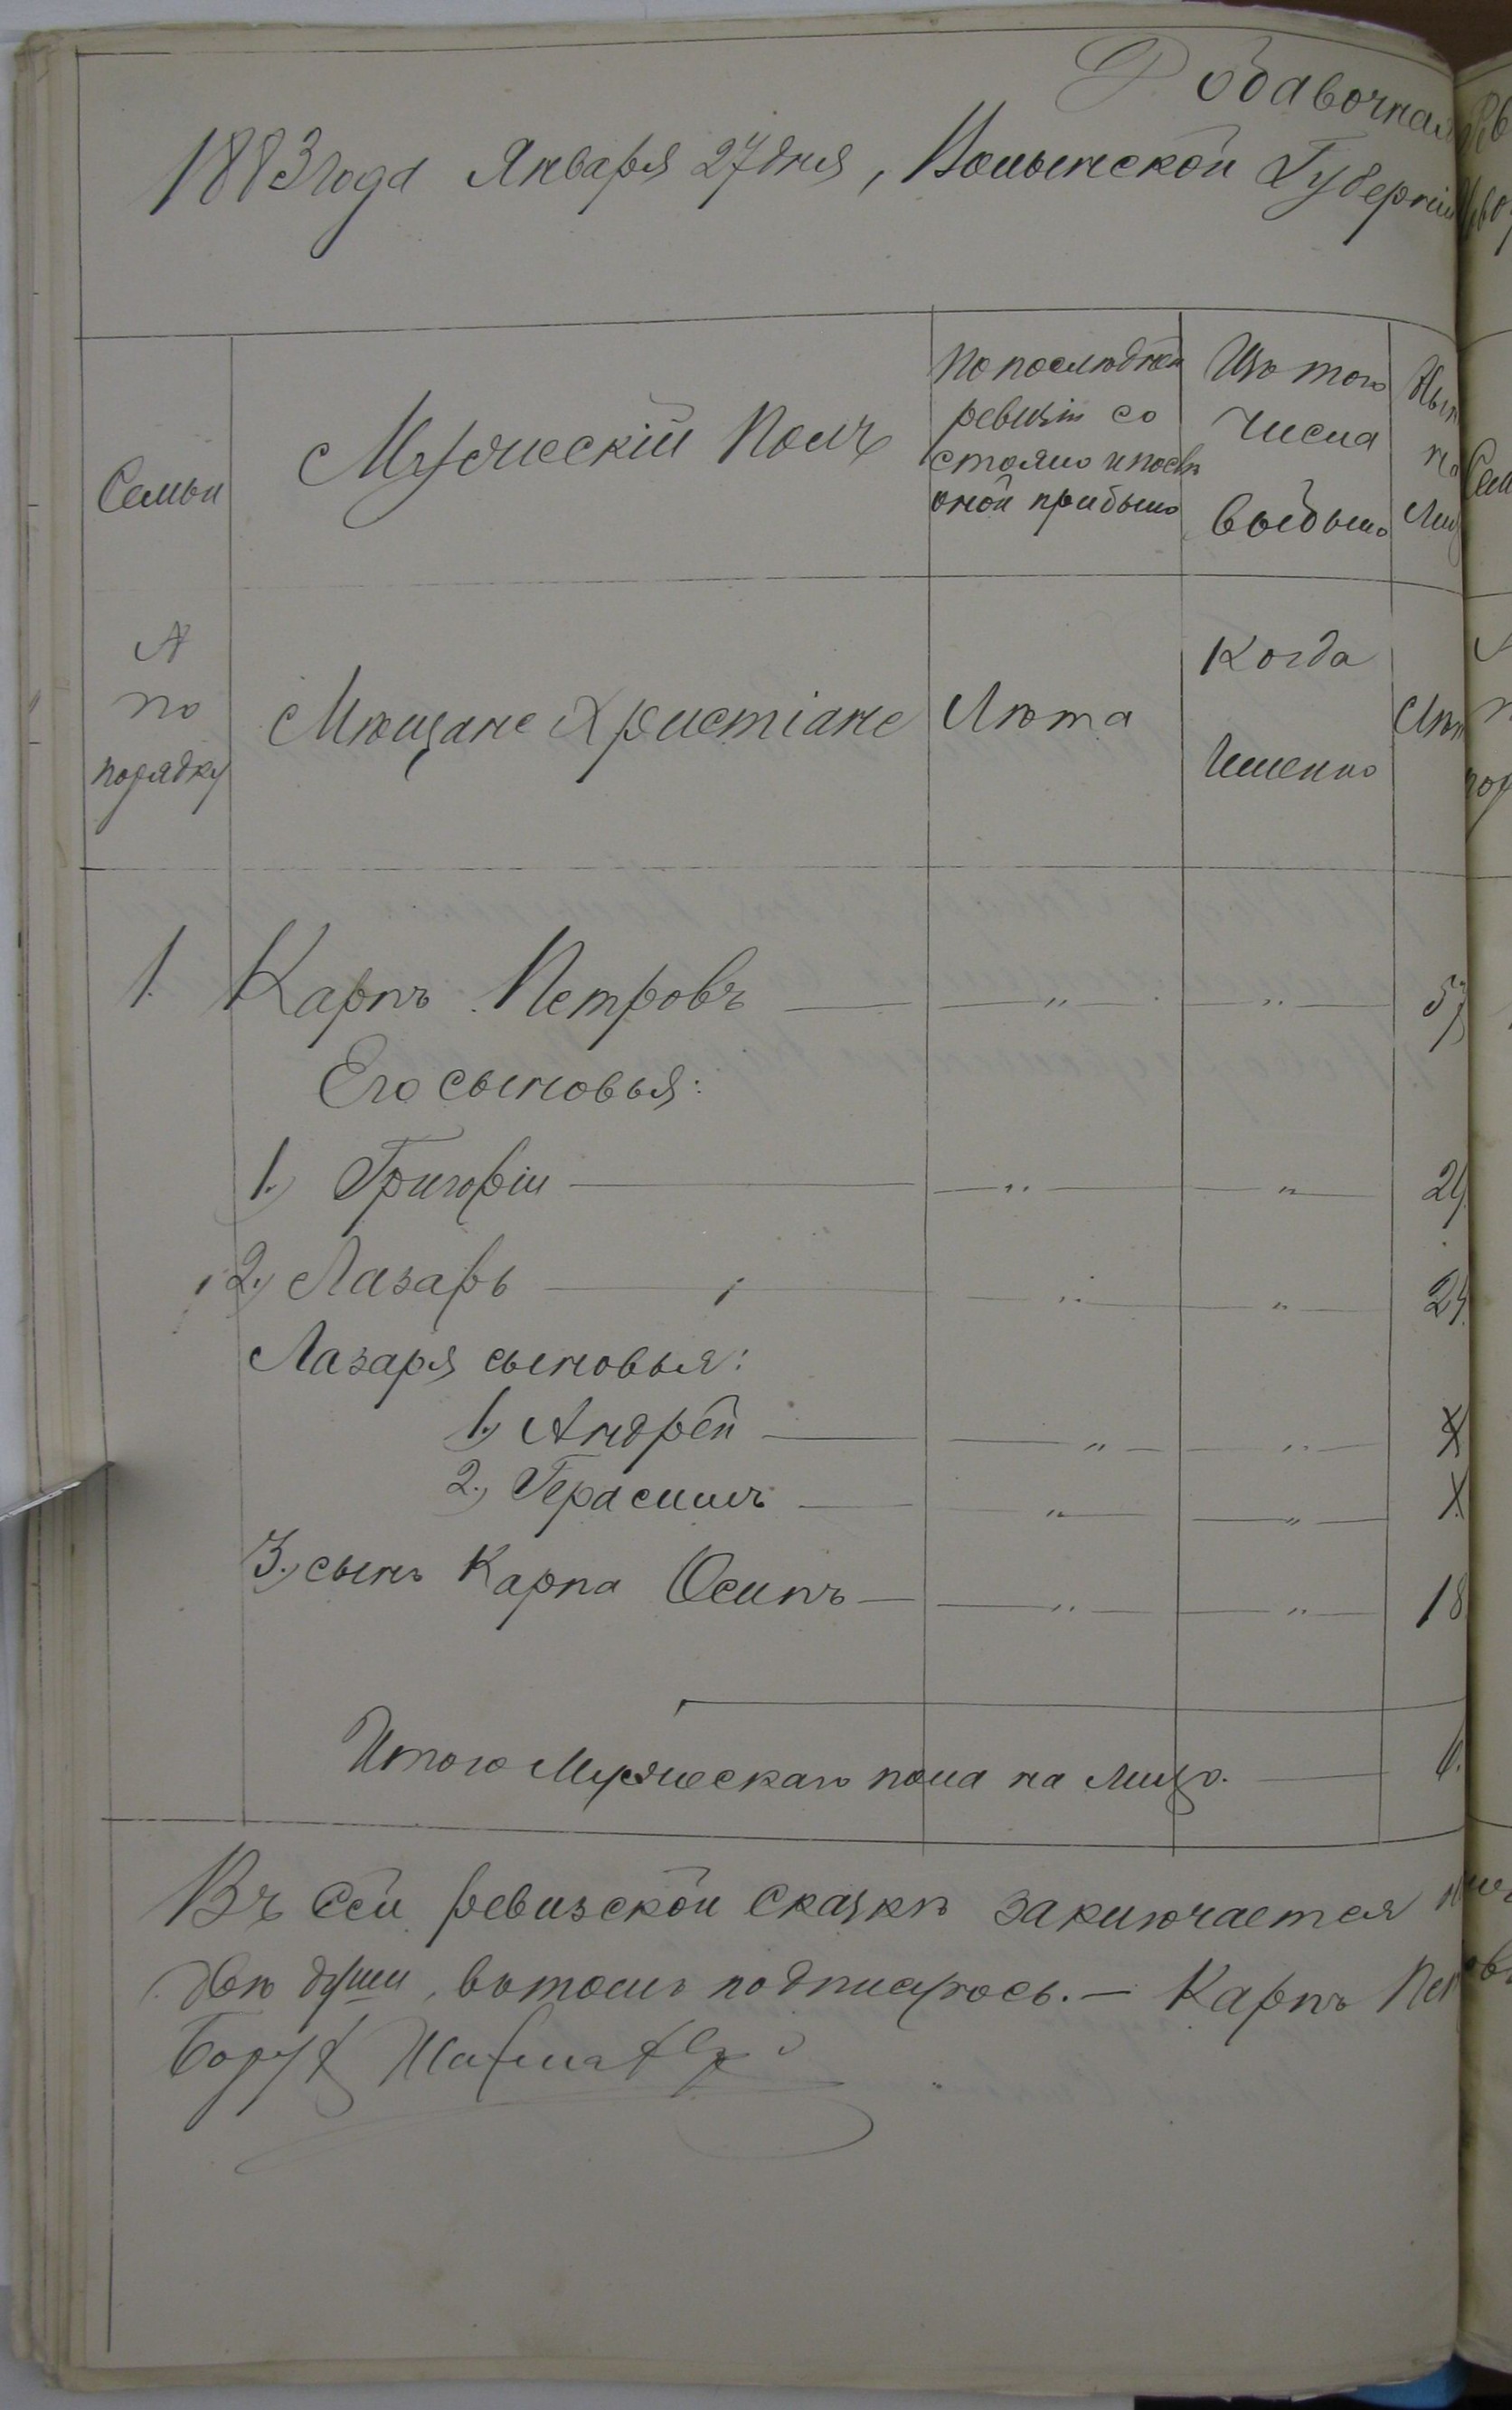 Добавочная
1883 года Января 27 дня, Волынской Губерніи
Семьи
Мужескій Полъ
По последней
ревизіи со
стояло и после
оной прибыло
Изъ того
числа
выбыло
№
по
порядку
Мѣщане Христіане
Лѣта
Когда
Именно
1. Карпъ Петровъ — " — " —
Его сыновья:
1.) Григорій — " — " —
2.) Лазарь — " — " —
Лазаря сыновья:
1.) Андрей — " — " —
2.) Герасимъ — " — " —
3.) сынъ Карпа Осипъ — " — " — 18
Итого Мужескаго пола на лицо. —
Въ сей ревизской сказкѣ заключается
двѣ души, вътомъ подписуюсь. — Карпъ